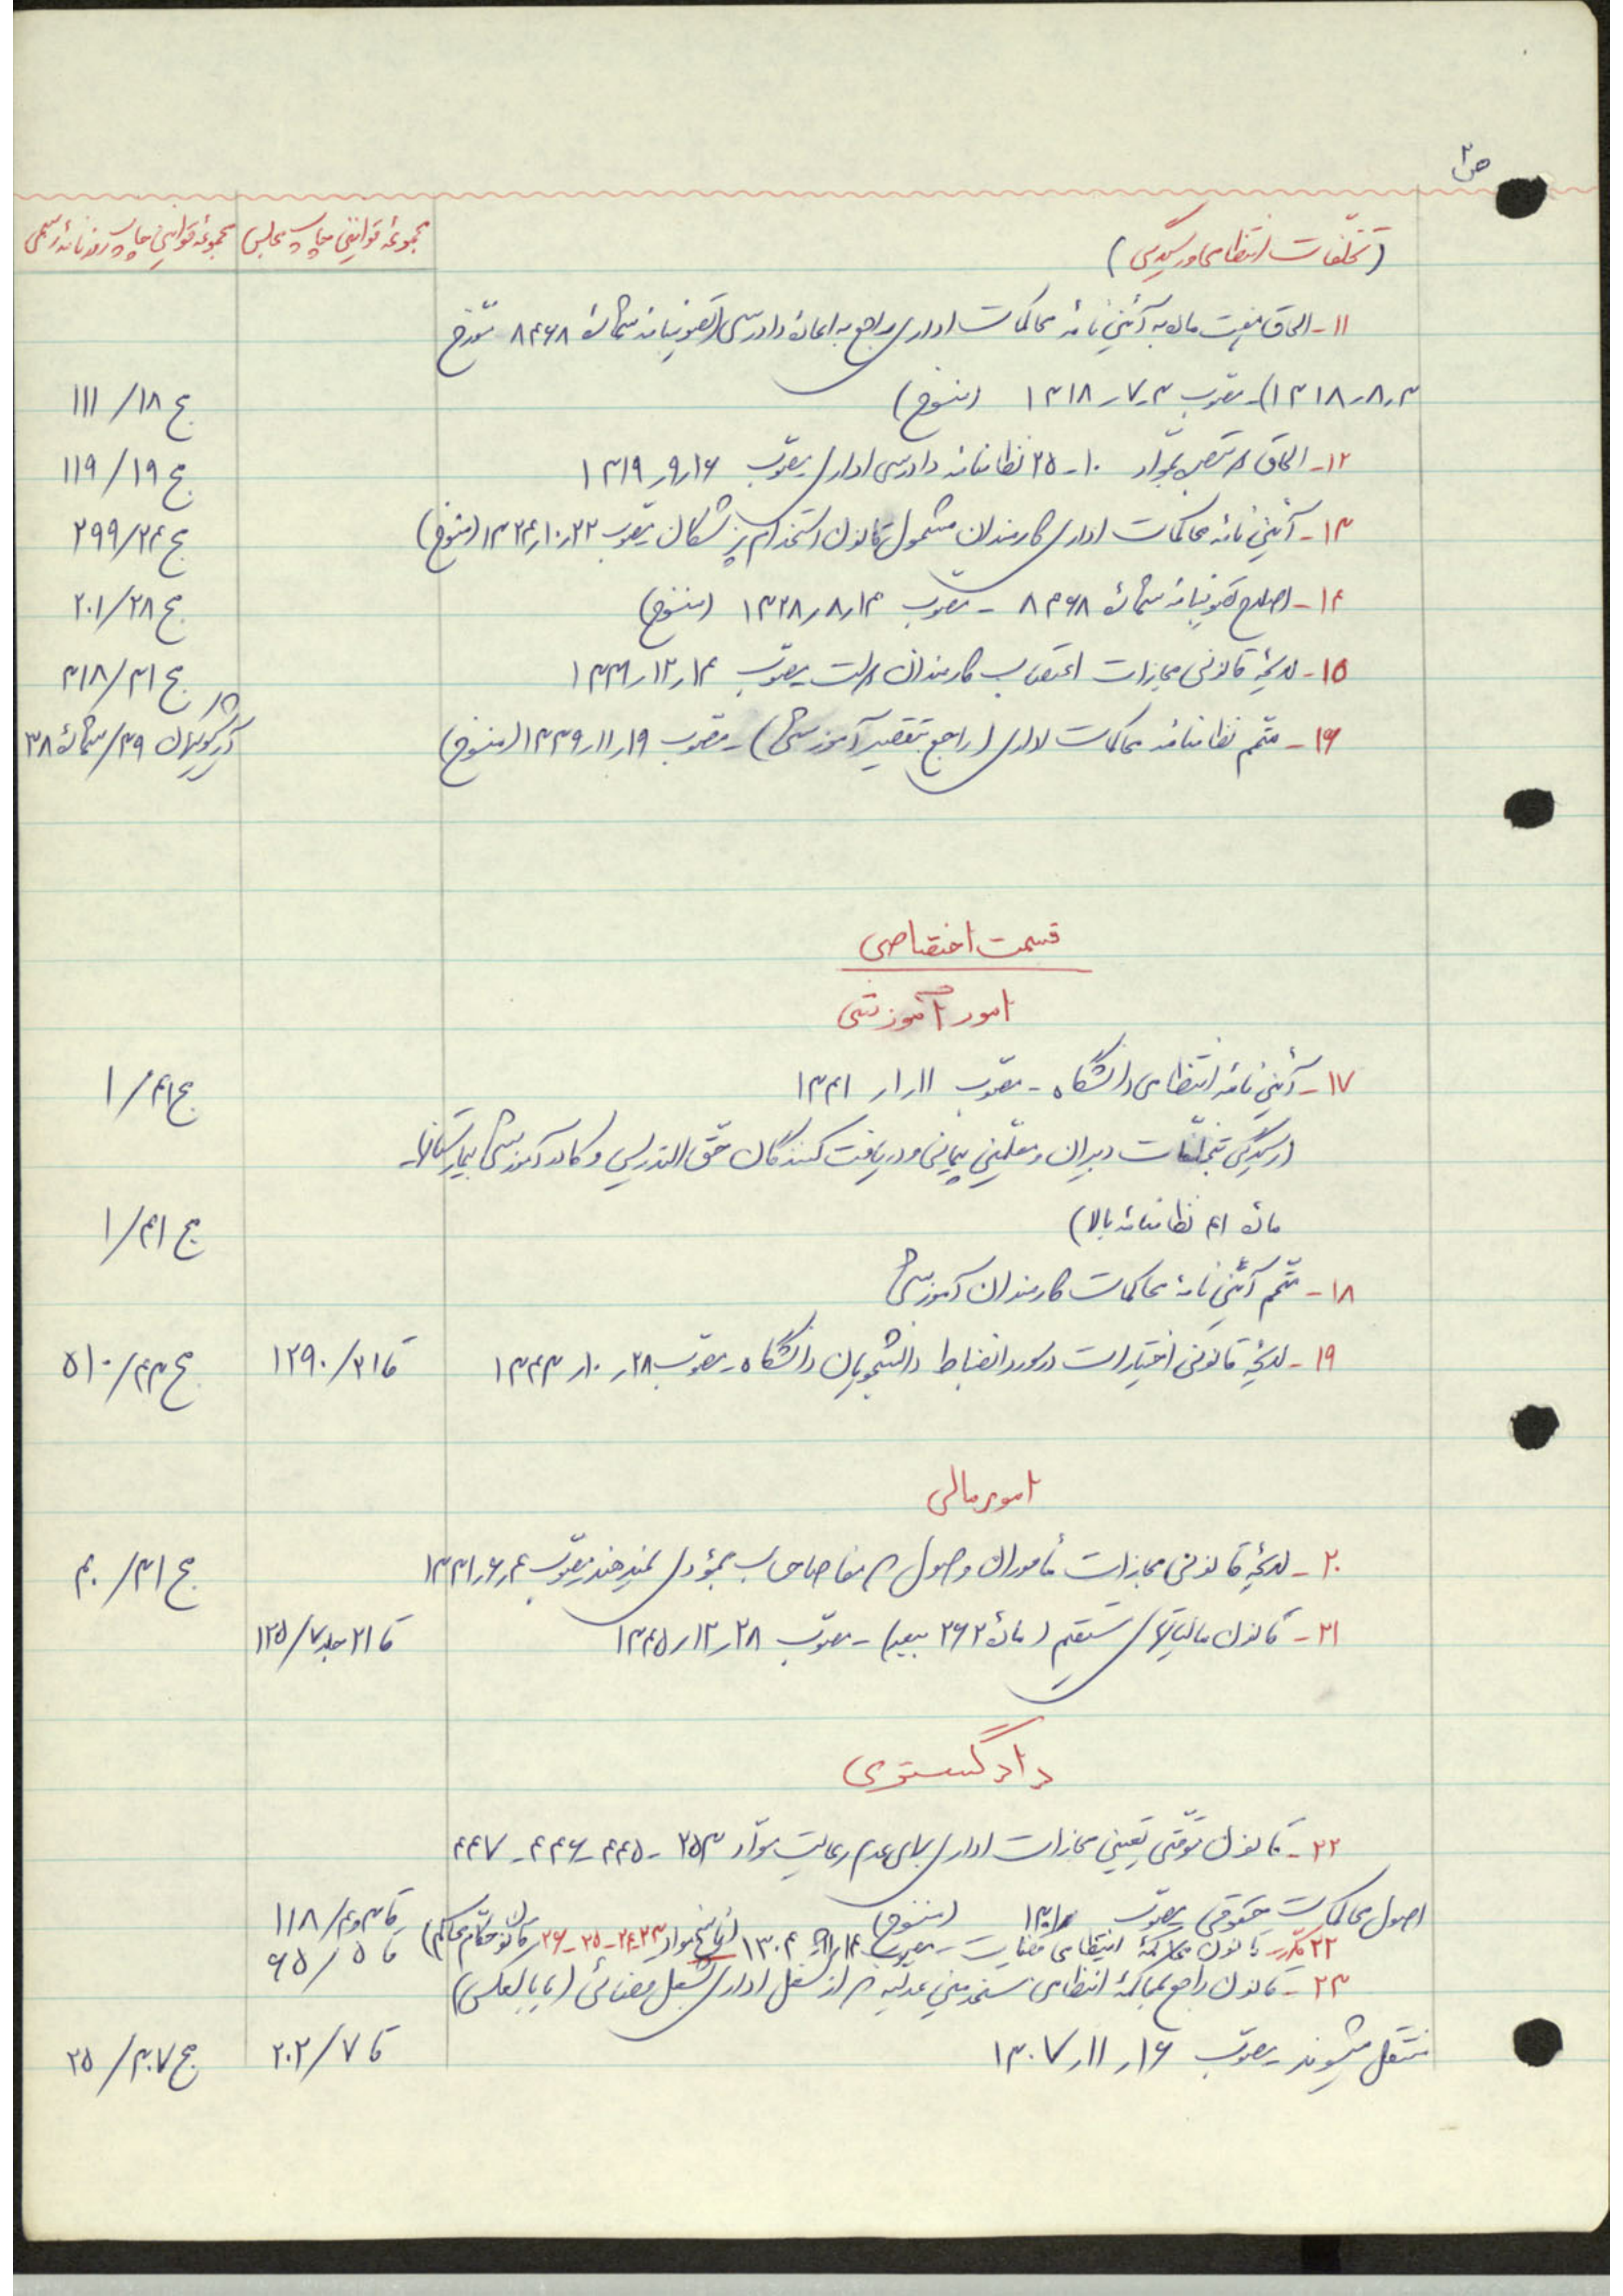 ص ۲
(تخلّفات انتظامی و رسیدگی) مجموعهٔ قوانین چاپ مجلس مجموعهٔ قوانین چاپ روزنامهٔ رسمی
۱۱- الحاق هفت ماده به آئین نامهٔ محاکمات اداری راجع به اعادهٔ دادرسی (تصویبنامه شمارهٔ ۸۴۶۸ مورّخ
۱۳۱۸٫۸٫۳) - مصوب ۱۳۱۸٫۷٫۳ (منسوخ) ج ۱۸ / ۱۱۱
۱۲- الحاق تبصره بموادّ ۱۰-۲۵ نظامنامه دادرسی اداری مصوّب ۱۳۱۹٫۹٫۱۶ ج ۱۹ / ۱۱۹
۱۳- آئین نامهٔ محاکمات اداری کارمندان مشمول قانون استخدام پزشکان مصوّب ۱۳۲۴٫۱۰٫۲۲ (منسوخ) ج ۲۴ / ۲۹۹
۱۴- اصلاح تصویبنامه شمارهٔ ۸۴۶۸ - مصوّب ۱۳۲۸٫۸٫۱۴ (منسوخ) ج ۲۸ / ۲۰۱
۱۵- لایحهٔ قانونی مجازات اعتصاب کارمندان دولت مصوّب ۱۳۳۱٫۱۲٫۱۴ ج ۳۱ / ۳۱۸
۱۶- متمّم نظامنامه محاکمات اداری (راجع بتقصیر آموزشی) - مصوب ۱۳۳۹٫۱۱٫۱۹ (منسوخ) ۳۹ / شمارهٔ ۳۸
قسمت اختصاصی
امور آموزشی
۱۷- آئین نامهٔ انتظامی دانشگاه - مصوّب ۱۳۴۱٫۱٫۱۱ ج ۴۱ / ۱
(رسیدگی بتخلّفات دبیران و معلّمین پیمانی و دریافت کنندگان حقّ التدریس و کادر آموزشی بیمارستانها -
مادهٔ ۴۱ نظامنامهٔ بالا) ج ۴۱ / ۱
۱۸- متمّم آئین نامهٔ محاکمات کارمندان آموزشی
۱۹- لایحهٔ قانونی اختیارات در مورد انضباط دانشجویان دانشگاه - مصوّب ۱۳۴۳٫۱۰٫۲۸ قا ۲۱ / ۱۲۹۰ ج ۴۳ / ۵۱۰
امور مالی
۲۰- لایحهٔ قانونی مجازات مأموران وصول که مفاصا حساب بمؤدی نمیدهند مصوّب ۱۳۳۱٫۶٫۴ ج ۳۱ / ۴۰
۲۱- قانون مالیاتهای مستقیم (مادهٔ ۲۶۲ ببعد) - مصوّب ۱۳۴۵٫۱۲٫۲۸ قا ۲۱ جلد ۷ / ۱۲۵
دادگستری
۲۲- قانون موقّتی تعیین مجازات اداری برای عدم رعایت موادّ ۲۵۳ - ۴۴۵ - ۴۴۶ - ۴۴۷
اصول محاکمات حقوقی مصوّب (منسوخ) قا ۳ و ۴ / ۱۱۸
۲۲ مکرّر - قانون محاکمهٔ انتظامی قضات - مصوب ۱۳۰۴ (ناسخ مواد ۲۳-۲۴-۲۵-۲۶ قانون حکّام محاکم) قا ۵ / ۶۵
۲۳- قانون راجع بمحاکمهٔ انتظامی مستخدمینی عدلیه که از شغل اداری بشغل قضائی (یا بالعکس)
منتقل میشوند مصوّب ۱۳۰۷٫۱۱٫۱۶ قا ۷ / ۲۰۲ ج ۳۰۷ / ۲۵